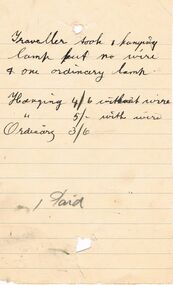 Traveller took 1 hanging
lamp but no wire
& one ordinary lamp.
Hanging 4/6 without wire
" 5/- with wire
Ordinary 3/6
Paid